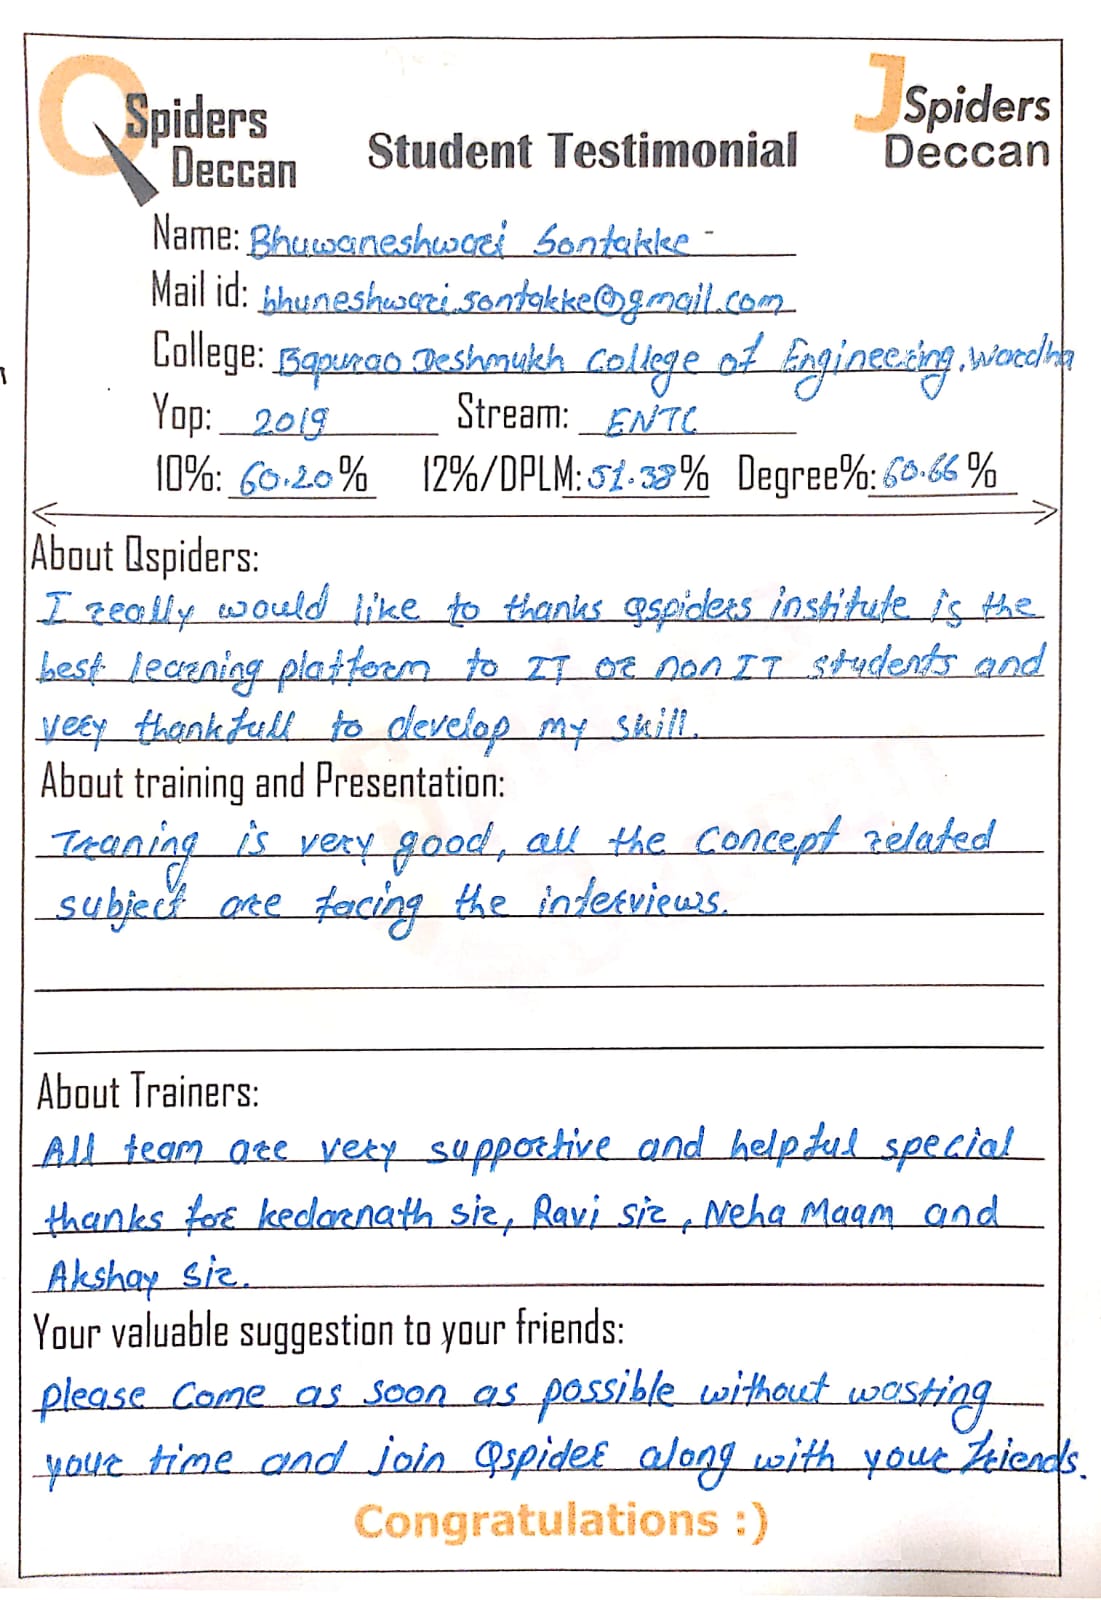 QSpiders
Deccan
JSpiders
Deccan
Student Testimonial
Name: Bhuwaneshwari Sontakke
Mail id: bhuneshwari.sontakke@gmail.com
College: Bapurao Deshmukh College of Engineering, Wardha
Yop: 2019 Stream: ENTC
10%: 60.20% 12%/DPLM: 51.38% Degree%: 60.66%
About Qspiders:
I really would like to thanks Qspiders institute is the
best learning platform to IT or non IT students and
very thankfull to develop my skill.
About training and Presentation:
Traning is very good, all the concept related
subject are facing the interviews.
About Trainers:
All team are very supportive and helpful special
thanks for kedarnath sir, Ravi sir, Neha Maam and
Akshay Sir.
Your valuable suggestion to your friends:
please Come as soon as possible without wasting
your time and join Qspider along with your friends.
Congratulations :)